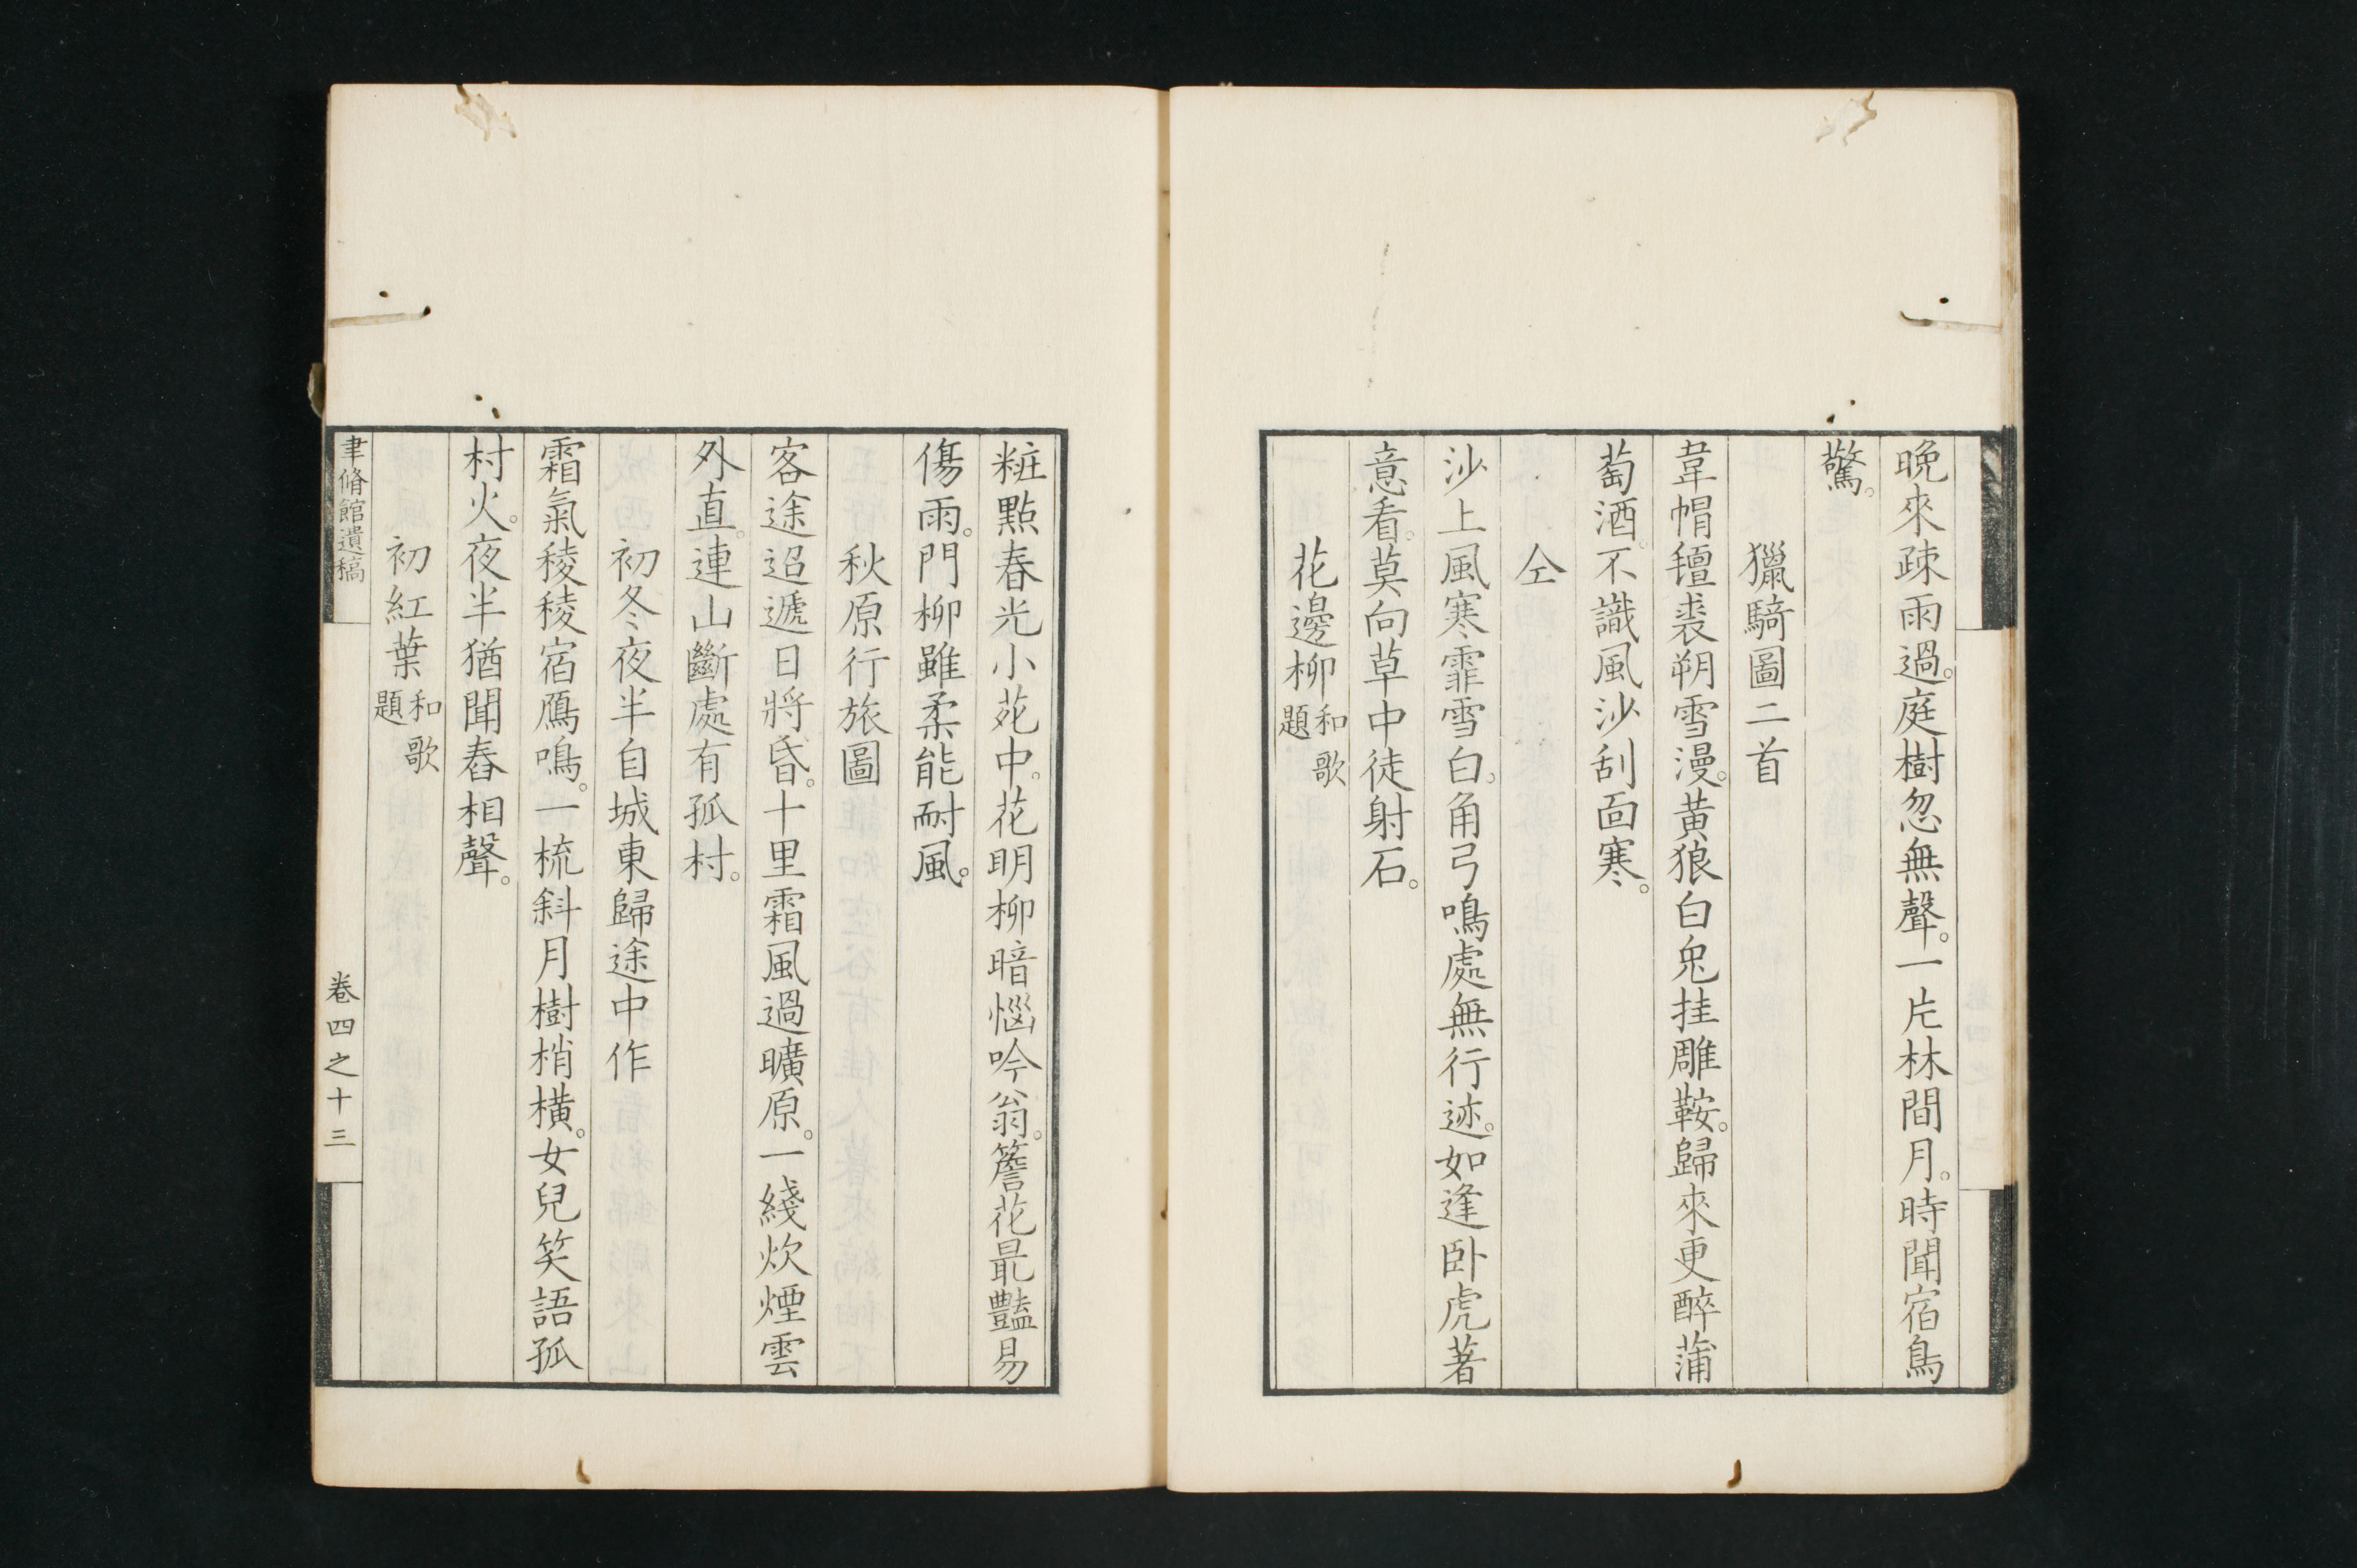 晩來疎雨過。庭樹忽無聲。一片林間月。時聞宿鳥
驚。
獵騎圖二首
韋帽氊裘朔雪漫。黄狼白兔挂雕鞍。歸來更醉蒲
萄酒。不識風沙刮面寒。
仝
沙上風寒霏雪白。角弓鳴處無行迹。如逢卧虎著
意看。莫向草中徒射石。
花邊柳 和歌題
粧點春光小苑中。花明柳暗惱吟翁。簷花最豔易
傷雨。門柳雖柔能耐風。
秋原行旅圖
客途迢遞日將昏。十里霜風過曠原。一綫炊煙雲
外直。連山斷處有孤村。
初冬夜半自城東歸途中作
霜氣稜稜宿鴈鳴。一梳斜月樹梢橫。女兒笑語孤
村火。夜半猶聞舂相聲。
初紅葉 和歌題
聿脩館遺稿
卷四之十三